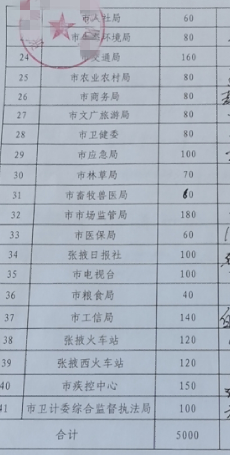 市人社局 60
环境局 80
24 交通局 160
25 市农业农村局 80
26 市商务局 80
27 市文广旅游局 80
28 市卫健委 80
29 市应急局 100
30 市林草局 70
31 市畜牧兽医局 60
32 市市场监管局 180
33 市医保局 60
34 张掖日报社 100
35 市电视台 100
36 市粮食局 40
37 市工信局 140
38 张掖火车站 120
39 张掖西火车站 120
40 市疾控中心 150
41 市卫计委综合监督执法局 100
合计 5000